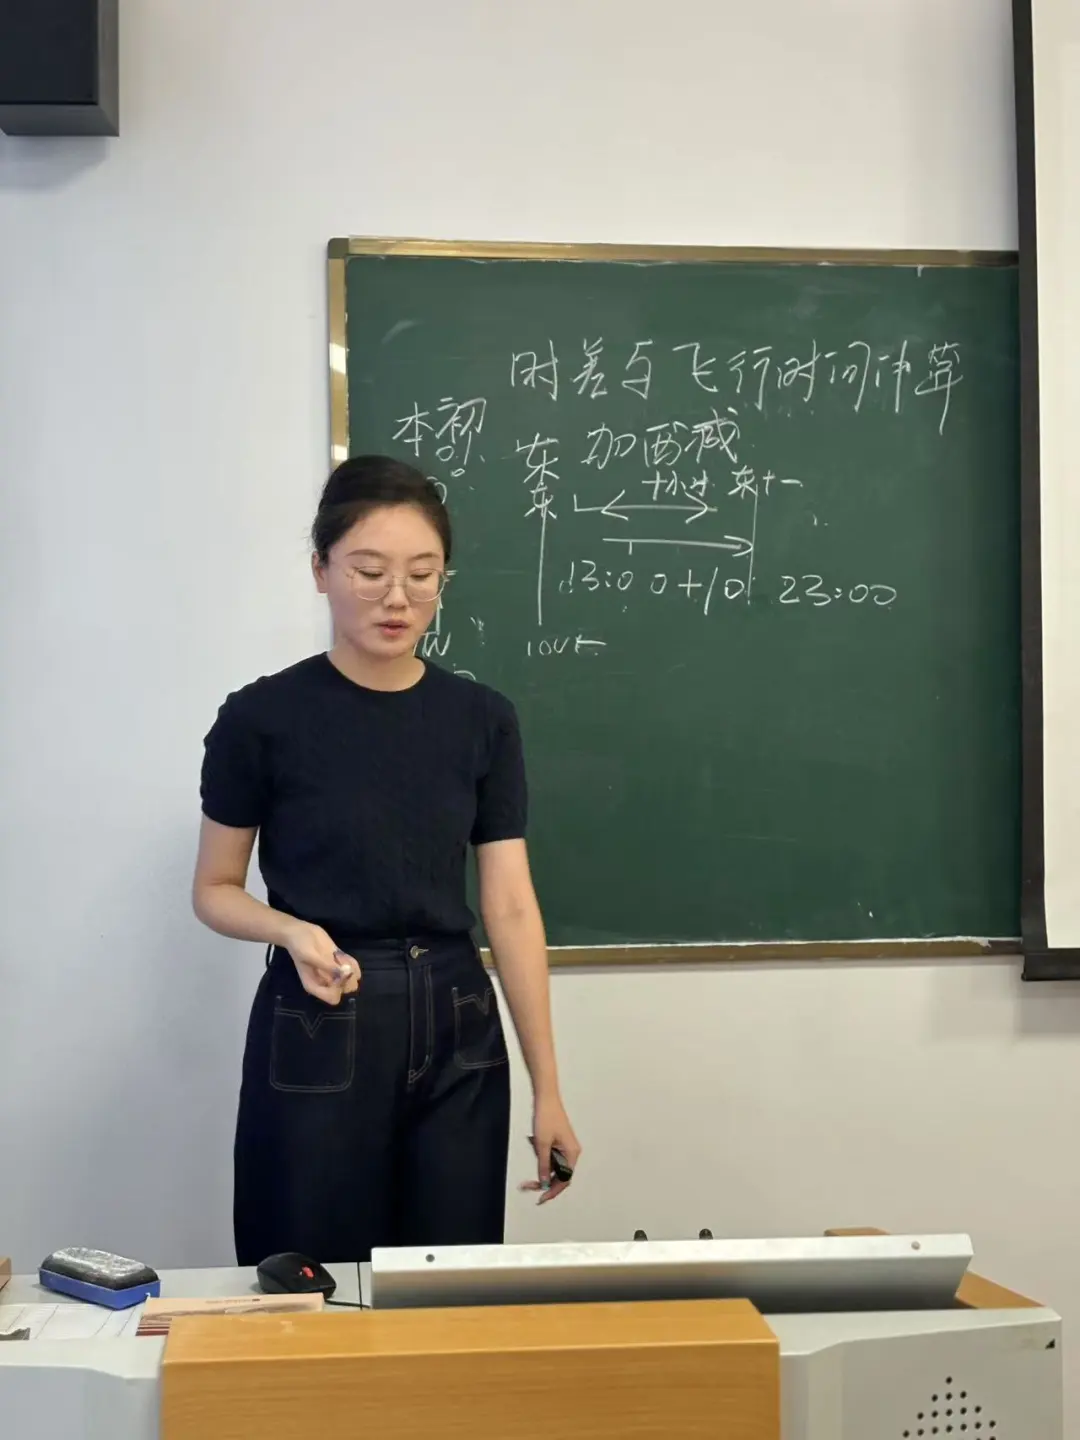 时差与飞行时间计算
本初
0°
东加西减
东
十小时
东十一
13:00+10
23:00